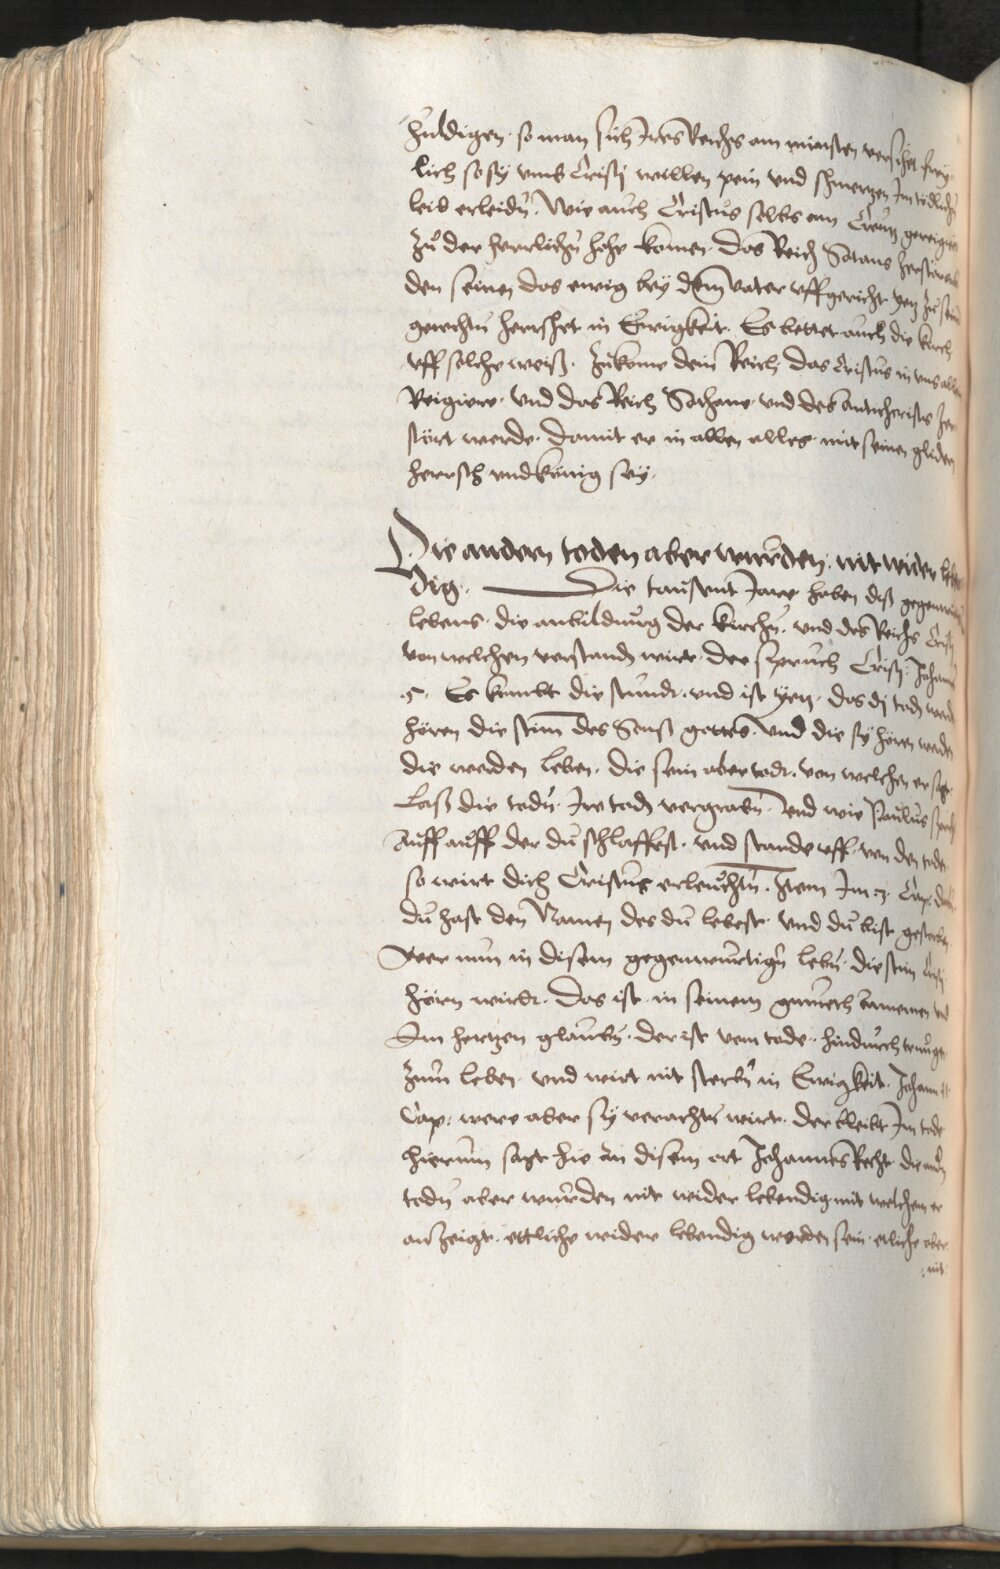 huldigen. so man sich Ires Reichs am minsten versicht. frey
lich so sy umb Cristj willen pein und schmertzen Im tödlichn
leib erleidn. Wie auch Cristus selbs am Creutz
zu der herrlichn hohe komen. das Reich Satans
den seinen das ewig bey dem vater uffgericht yetz zu
gerechtn herschet in Ewigkeit. Es bettet auch die kirch
uff solche weiß. Zukome dein Reich das Cristus in uns allen
Regiere. und das Reich Sathans. und des antichrists zer
stört werde. damit er in allen alles. mit seinen gliden
hersch und konig sey.
Die andern toden aber wurden. nit wider leben
dig. Die tausent Jare haben diß
lebens. die anbildung der kirchn. und des Reichs Cristj
von welchen verstanden wirt. der spruch Cristj. Johann
5. Es kombt die stund. und ist yetz. das dj todn werdn
hören die stim des Suns gottes. und die sy hören werden
die werden leben. die sein aber tod. von welchen er sagt
Laß die todn. Ire todn vergrabn. Und wie Paulus spricht
Auff auff der du schlaffest. und stande uff. von den todn
so wirt dich Cristus erleuchtn. Item Im 3. Cap.
du hast den Namen des du lebest. und du bist gestorben
Wer nun in disem gegenwurtign lebn. die stim Cristj
hörn wirdt. Das ist. in seinem annemen und
Im hertzen glaubn. der ist vom tode. hindurch
zum leben. und wirt nit sterbn in Ewigkeit. Johann
Cap. were aber sy verachtn wirt. der bleibt Im tode
hierum sagt hie an disem ort Johannes Recht. die andn
todn aber wurden nit wider lebendig mit welchem er
anzeigt. ettliche wider lebendig worden sein. etliche aber
nit.